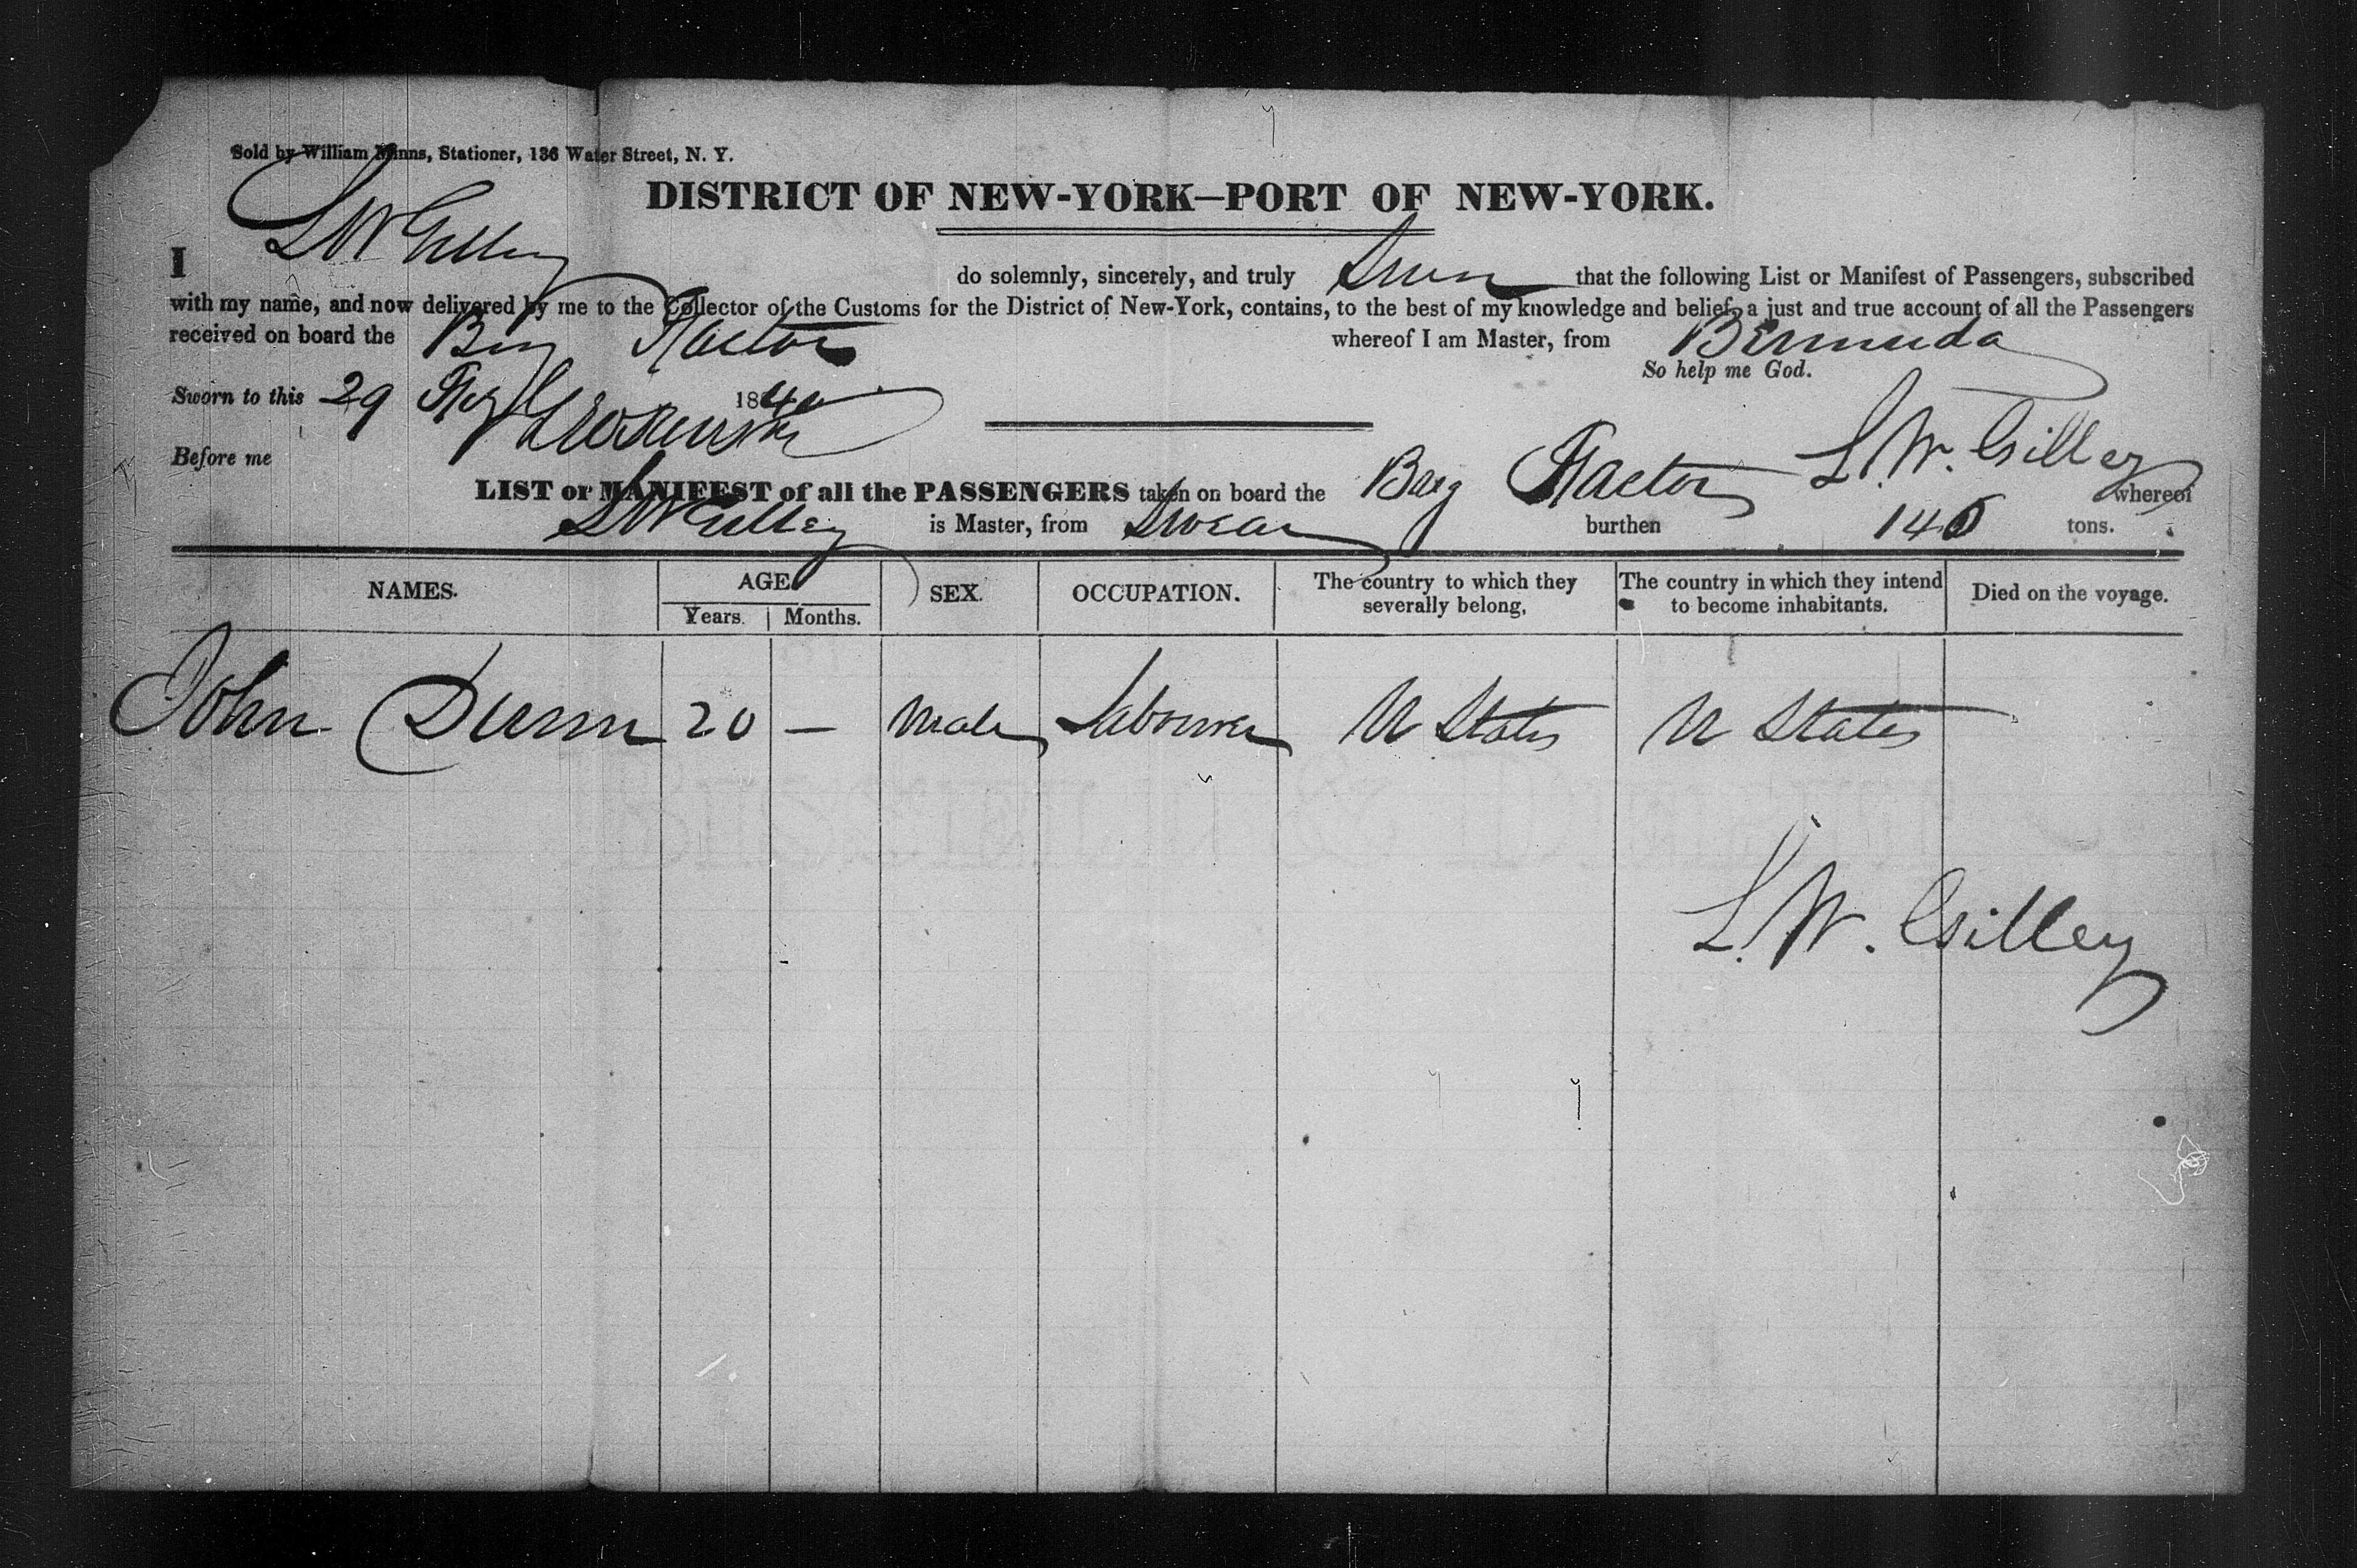 Sold by William Minns, Stationer, 136 Water Street, N. Y.
DISTRICT OF NEW-YORK—PORT OF NEW-YORK.
I L W Gilley do solemnly, sincerely, and truly that the following List or Manifest of Passengers, subscribed
with my name, and now delivered by me to the Collector of the Customs for the District of New-York, contains, to the best of my knowledge and belief, a just and true account of all the Passengers
received on board the Brig Factor whereof I am Master, from Bermuda
So help me God.
Sworn to this 29 1840
Before me
L. W. Gilley
LIST or MANIFEST of all the PASSENGERS taken on board the Barg Factor whereof
L W Gilley is Master, from burthen 140 tons.
NAMES. AGE. SEX. OCCUPATION. The country to which they severally belong, The country in which they intend to become inhabitants. Died on the voyage.
Years. Months.
John Dunn 20 — Male Labourer U States U States
L. W. Gilley